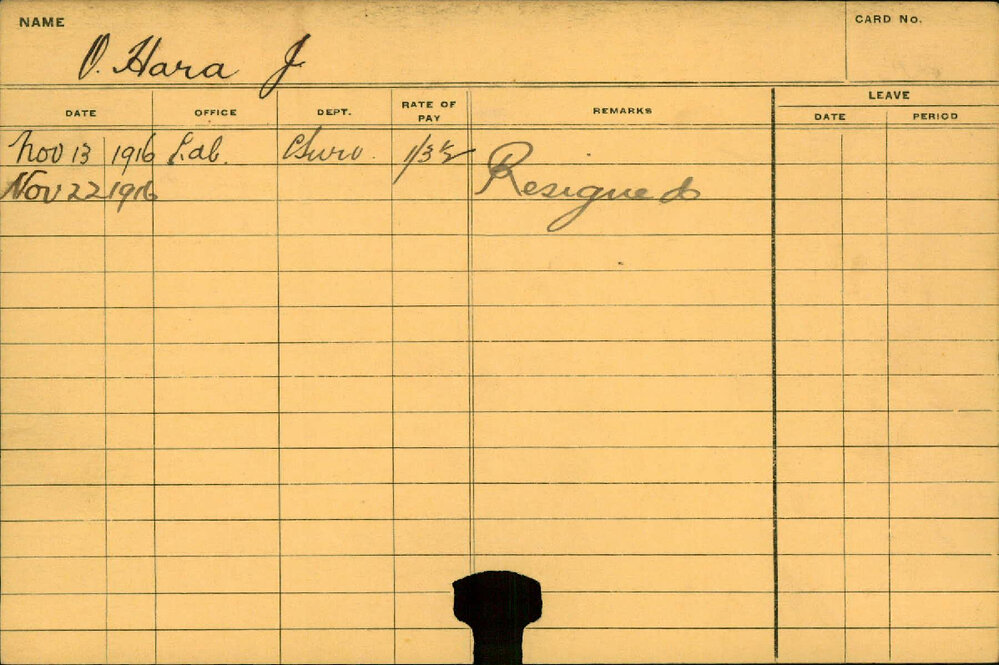 NAME
CARD No.
O. Hara J
DATE OFFICE DEPT. RATE OF PAY REMARKS LEAVE
DATE PERIOD
Nov 13 1916 Lab. 1/3½
Nov 22 1916 Resigned